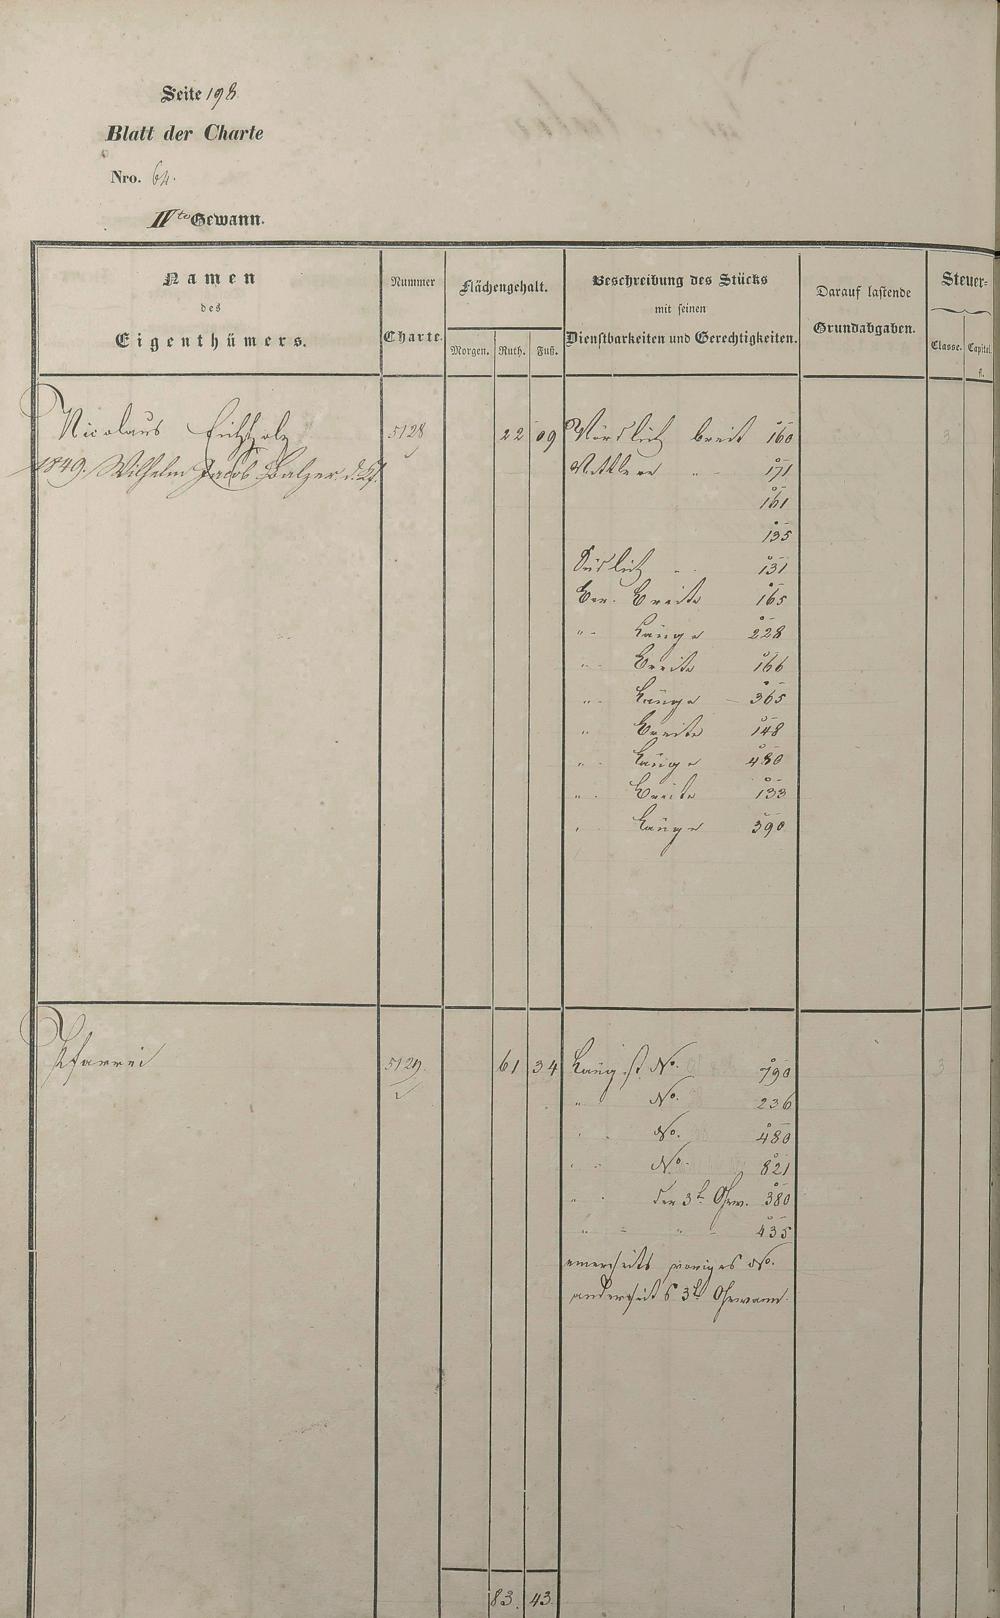 Seite 198
Blatt der Charte
Nro. 64.
IVte Gewann.
Namen
des
Eigenthümers.
Nummer
Charte.
Flächengehalt.
Morgen. Ruth. Fuß.
Beschreibung des Stücks
mit seinen
Dienstbarkeiten und Gerechtigkeiten.
Darauf lastende
Grundabgaben.
Steuer=
Classe. Capital.
fl.
Nicolaus Eichholz 5128 22 09 Nördlich breit 160 3
1849. Wilhelm Jacob Balzer d. Kf. Mittlere " 171
161
135
Südlich " 131
Ger. Breite 165
" Länge 228
" Breite 166
" Länge 365
" Breite 148
" Länge 480
" Breite 133
" Länge 390
Pfarrei 5129 61 34 Läng. st. No. 790 3
" No. 236
" No. 480
" No. 821
" der 3t. Gew. 380
" " " 435
einerseits voriges No.
anderseits 3t. Gewann.
83. 43.